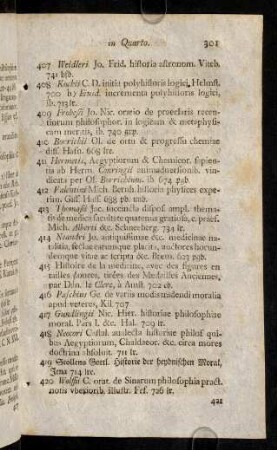 in Quarto. 301
407 Weidleri Jo. Frid. historia astronom. Viteb.
741 hfb.
408 Kochii C. D. initia polyhistoris logici, Helmst.
700 b) Eiusd. incrementa polyhistoris logici,
ib.
409 Frobesii Jo. Nic. oratio de praeclaris recen-
tiorum philosophor. in logicam & metaphysi-
cam meritis, ib. 740
410 Borrichii Ol. de ortu & progressu chemiae
diss. Hafn. 668
411 Hermetis, Aegyptiorum & Chemicor. sapien-
tia ab Herm. Conringii animadversionib. vin-
dicata per Ol. Borrichium. ib. 674
412 Valentini Mich. Bernh. historia physices expe-
rim.
413 Thomasii Jac. succincta disposi. ampl. thema-
tis de medici sanitate quatenus gratuito, c. praef.
Mich. Alberti &c. Schneeberg. 734 lt.
414 Neandri Jo. antiquissimae &c. medicinae na-
talitia, sectae earumque placita, auctores hucus-
demque vitae ac scripta &c. Brem. 623
415 Histoire de la medicine, avec des figures en
tailles douces, tirées des Medailles Anciennes,
par Dan. le Clerc, à Amst. 702
416 Paschius Ge. de variis modis tradendi moralia
apud veteres, Kil. 707
417 Gundlingii Nic. Hier. historiae philosophiae
moral. Pars I. &c. Hal. 709 lt.
418 Neocori analecta historiae philos. qui-
bus Aegyptiorum, Chaldaeor. &c. circa mores
doctrina absoluit. 711 lt.
419 Stollens Gottl. Historie der heydnischen Moral,
Jena 714
420 Wolfii C. orat. de Sinarum philosophia pract.
notis vberiorib. illustr. Frf. 726 lt.
421